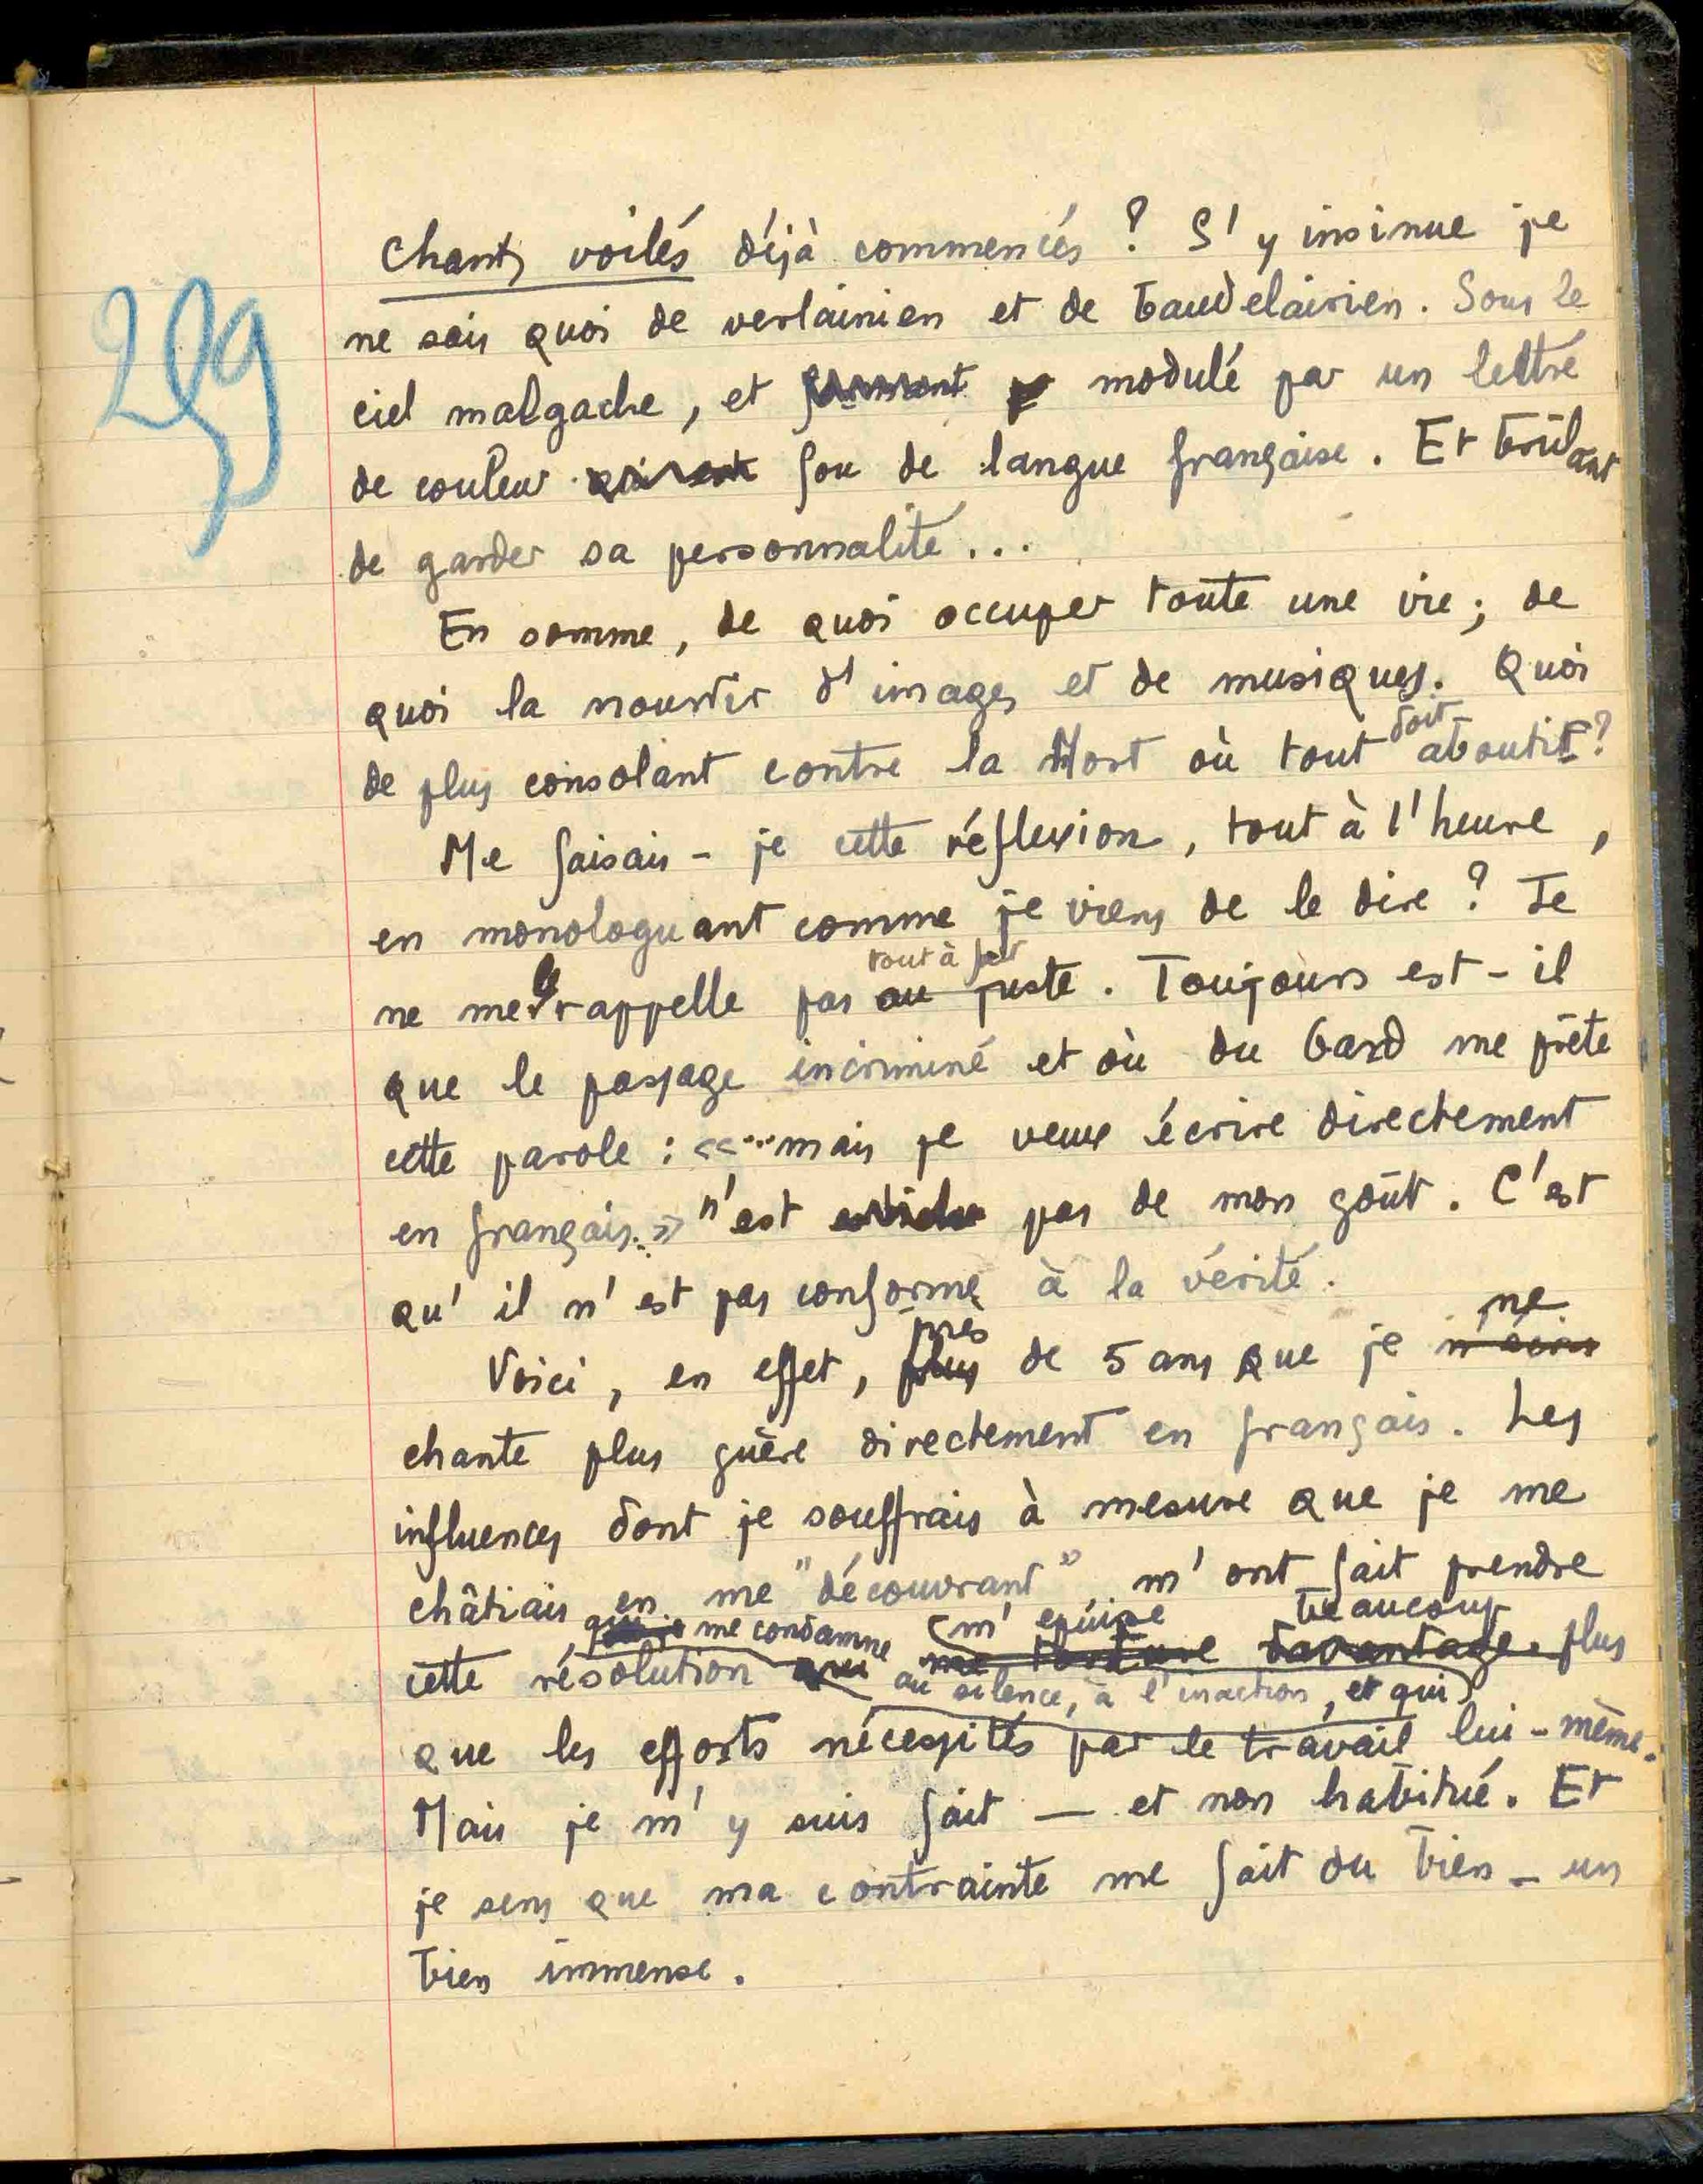 299
Chants voilés déjà commencés ? S'y insinue je
ne sais quoi de verlainien et de baudelairien. Sous le
ciel malgache, et modulé par un lettré
de couleur qui est fou de langue française. Et brûlant
de garder sa personnalité...
En somme, de quoi occuper toute une vie ; de
quoi la nourrir d'images et de musiques. Quoi
doit
de plus consolant contre la Mort où tout aboutir ?
Me faisais-je cette réflexion, tout à l'heure,
en monologuant comme je viens de le dire ? Je
tout à fait
ne me le rappelle pas au juste. Toujours est-il
que le passage incriminé et où du Gard me prête
cette parole : «...mais je veux écrire directement
en français... » n'est pas de mon goût. C'est
qu'il n'est pas conforme à la vérité.
près ne
Voici, en effet, plus de 5 ans que je n'écris
chante plus guère directement en français. Les
influences dont je souffrais à mesure que je me
châtiais en me "découvrant" m'ont fait prendre
, qui me condamne m'épuise beaucoup
cette résolution qui me torture davantage. plus
au silence, à l'inaction, et qui
que les efforts nécessités par le travail lui-même.
Mais je m'y suis fait — et non habitué. Et
je sens que ma contrainte me fait du bien — un
bien immense.